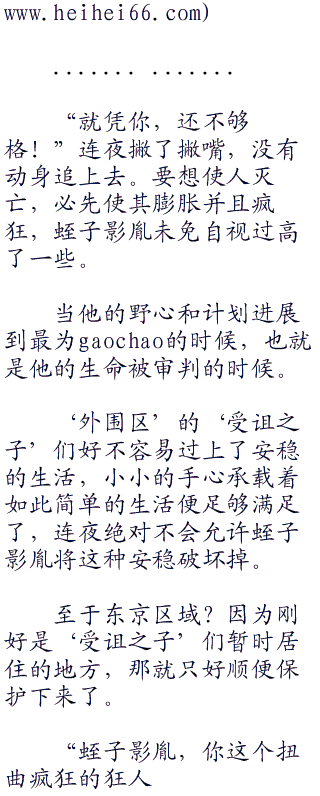 www.heihei66.com)
······· ·······
“就凭你，还不够
格！”连夜撇了撇嘴，没有
动身追上去。要想使人灭
亡，必先使其膨胀并且疯
狂，蛭子影胤未免自视过高
了一些。
当他的野心和计划进展
到最为gaochao的时候，也就
是他的生命被审判的时候。
‘外围区’的‘受诅之
子’们好不容易过上了安稳
的生活，小小的手心承载着
如此简单的生活便足够满足
了，连夜绝对不会允许蛭子
影胤将这种安稳破坏掉。
至于东京区域？因为刚
好是‘受诅之子’们暂时居
住的地方，那就只好顺便保
护下来了。
“蛭子影胤，你这个扭
曲疯狂的狂人